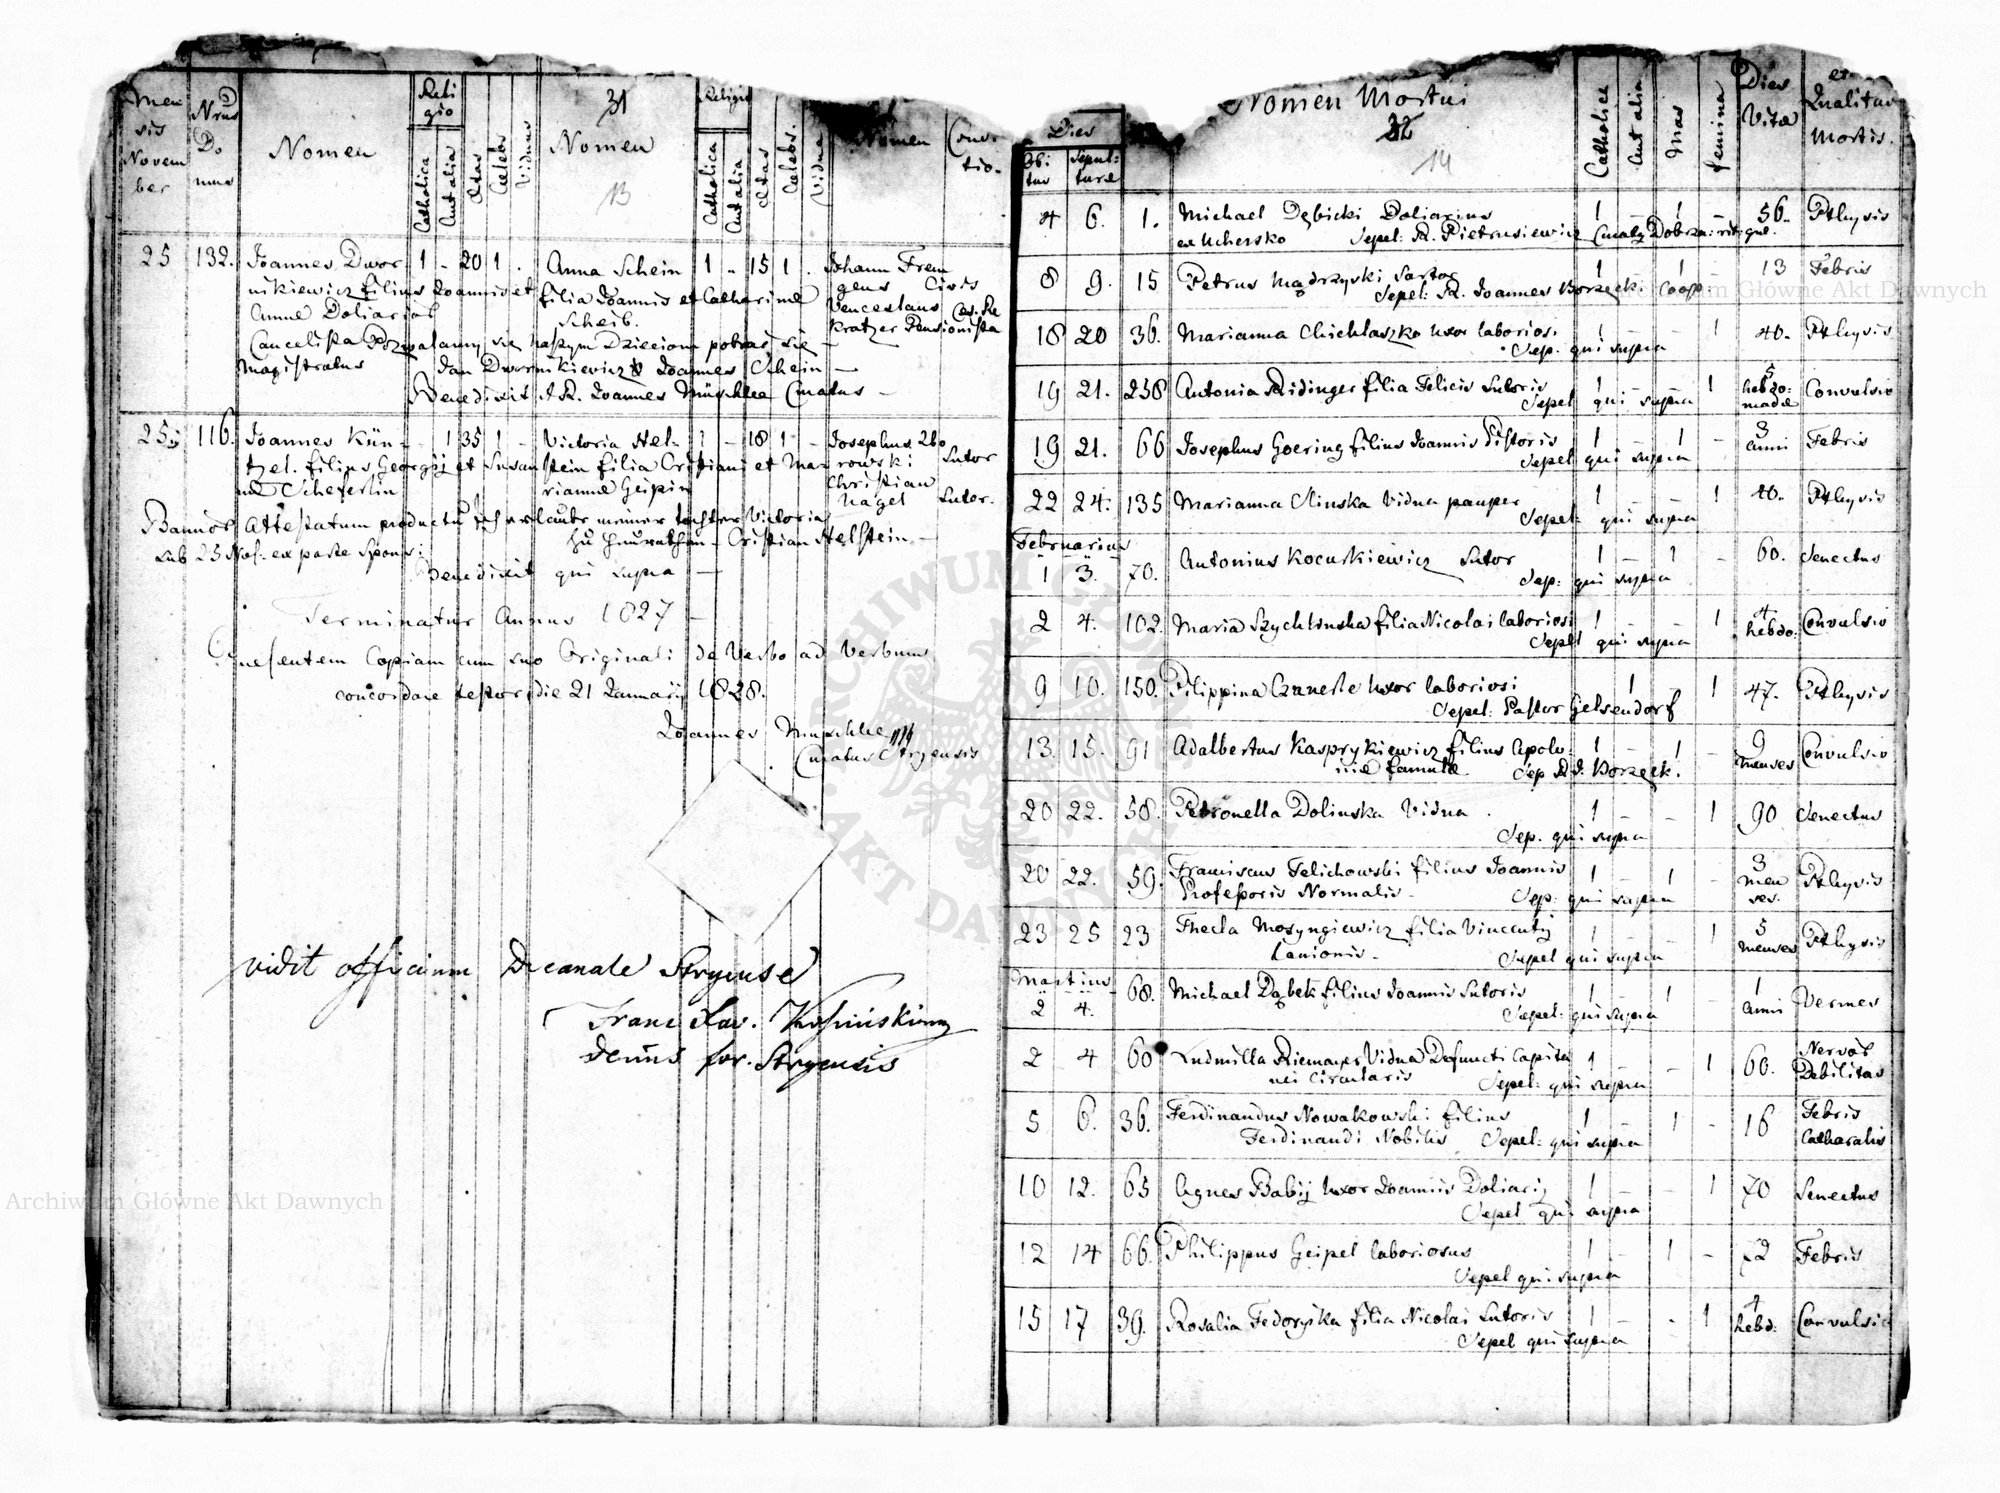 Mensis November
Nrus Domus
Nomen
Religio
Catholica
Aut alia
Ætas
Celebs
Viduus
31
Nomen
13
Religio
Catholica
Aut alia
Ætas
Celebs.
Vidua
Nomen
Conditio.
25 132. Joannes Dwor 1 - 20 1 . Anna Schein 1 - 15 1 . Johann Frem
nikiewicz filius Joannis et filia Joannis et Catharinæ gens Civis
Annæ Doliarius Scheib. Venceslaus Cæs. Re
Cancelista Pozwalamy się naszym Dzieciom pobrać się Kratzer Pensionista
Magistratus Jan Dwornikiewicz Joannes Schein
Benedixit A.R. Joannes Müschke Curatus
25 116. Joannes Kün- - 1 35 1 - Victoria Hel- 1 - 18 1 - Josephus Zbo
tzel filius Georgij et Susan stein filia Cristiani et Ma- rowski Sutor
næ Scheferlin riannæ Geipin Christian
Nagel Sutor.
Bannos Attestatum productū Ich erlaube meiner tochter Victoria
sub 25 Nof. ex parte Sponsi: zu heurathen - Cristian Helstein
Benedixit qui supra
Terminatur Annus 1827
Præsentem Copiam cum suo Originali de Verbo ad Verbum
concordare testor die 21 Januarij 1828.
Joannes Müschke
Curatus Stryensis
vidit officium Decanale Stryense
Franc Xav.
Decanus for. Stryensis
Dies
Obitus
Sepulturæ
Nomen Mortui
32
14
Catholica
Aut alia
Mas
femina
Dies Vitæ
et Qualitas Mortis.
4 6. 1. Michael Dębicki Doliarius 1 - 1 - 56. Pthysis
ex Uchersko Sepel: R. Pietrusiewicz
8 9. 15 Petrus Mądrzyski Sartor 1 - 1 - 13 Febris
Sepel: R. Joannes Borzęcki Coop.
18 20 36. Marianna Chichlaszka Uxor laboriosi 1 - - 1 40. Pthysis
Sep. qui supra
19 21. 258 Antonia Ridinger filia Felicis Sutoris 1 - - 1 5 hebdomadæ Convulsio
Sepel qui supra
19 21. 66 Josephus Goering filius Joannis Pistoris 1 - 1 - 3 anni Febris
Sepel qui supra
22 24. 135 Marianna Olinska Vidua pauper 1 - - 1 40. Pthysis
Sepel: qui supra
Februarius
1 3. 70. Antonius Kocurkiewicz Sutor 1 - 1 - 60. Senectus
Sep: qui supra
2 4. 102. Maria Szychlinska filia Nicolai laboriosi 1 - - 1 4 hebdo: Convulsio
Sepel qui supra
9 10. 150. Filippina Czaneste Uxor laboriosi 1 - 1 47. Pthysis
Sepel: Pastor Gelsendorf
13. 15. 91 Adalbertus Kasprykiewicz filius Apolo 1 - 1 - 9 menses Convulsio
niæ famulæ Sep R.J. Borzęck.
20 22. 58. Petronella Dolinska Vidua 1 - - 1 90 Senectus
Sep. qui supra
20 22. 59. Franciscus Telichowski filius Joannis 1 - 1 - 3 menses. Pthysis
Professoris Normalis - Sep: qui supra
23 25 23 Thecla Mosyngiewicz filia Vincentij 1 - - 1 5 menses Pthysis
Lanionis - Sepel qui supra
Martius
2 4. 68. Michael Dąbek filius Joannis Sutoris 1 - 1 - 1 anni Vermes
Sepel: qui supra
2 4 60 Ludmilla Riemayer Vidua Defuncti Capita 1 - - 1 60. Nervos
nei Circularis Sepel: qui supra Debilitas
5 6. 36. Ferdinandus Nowakowski filius 1 - 1 - 16 Febris
Ferdinandi Nobilis Sepel: qui supra Catharalis
10 12. 65 Agnes Babij Uxor Joannis Doliarij 1 - - 1 70 Senectus
Sepel qui supra
12 14 66. Philippus Geipel laboriosus 1 - 1 - 72 Febris
Sepel qui supra
15 17 39. Rosalia Fedoryska filia Nicolai Sutoris 1 - - 1 4 hebd: Convulsio
Sepel qui supra
Archiwum Główne Akt Dawnych
Archiwum Główne Akt Dawnych
ARCHIWUM GŁÓWNE AKT DAWNYCH